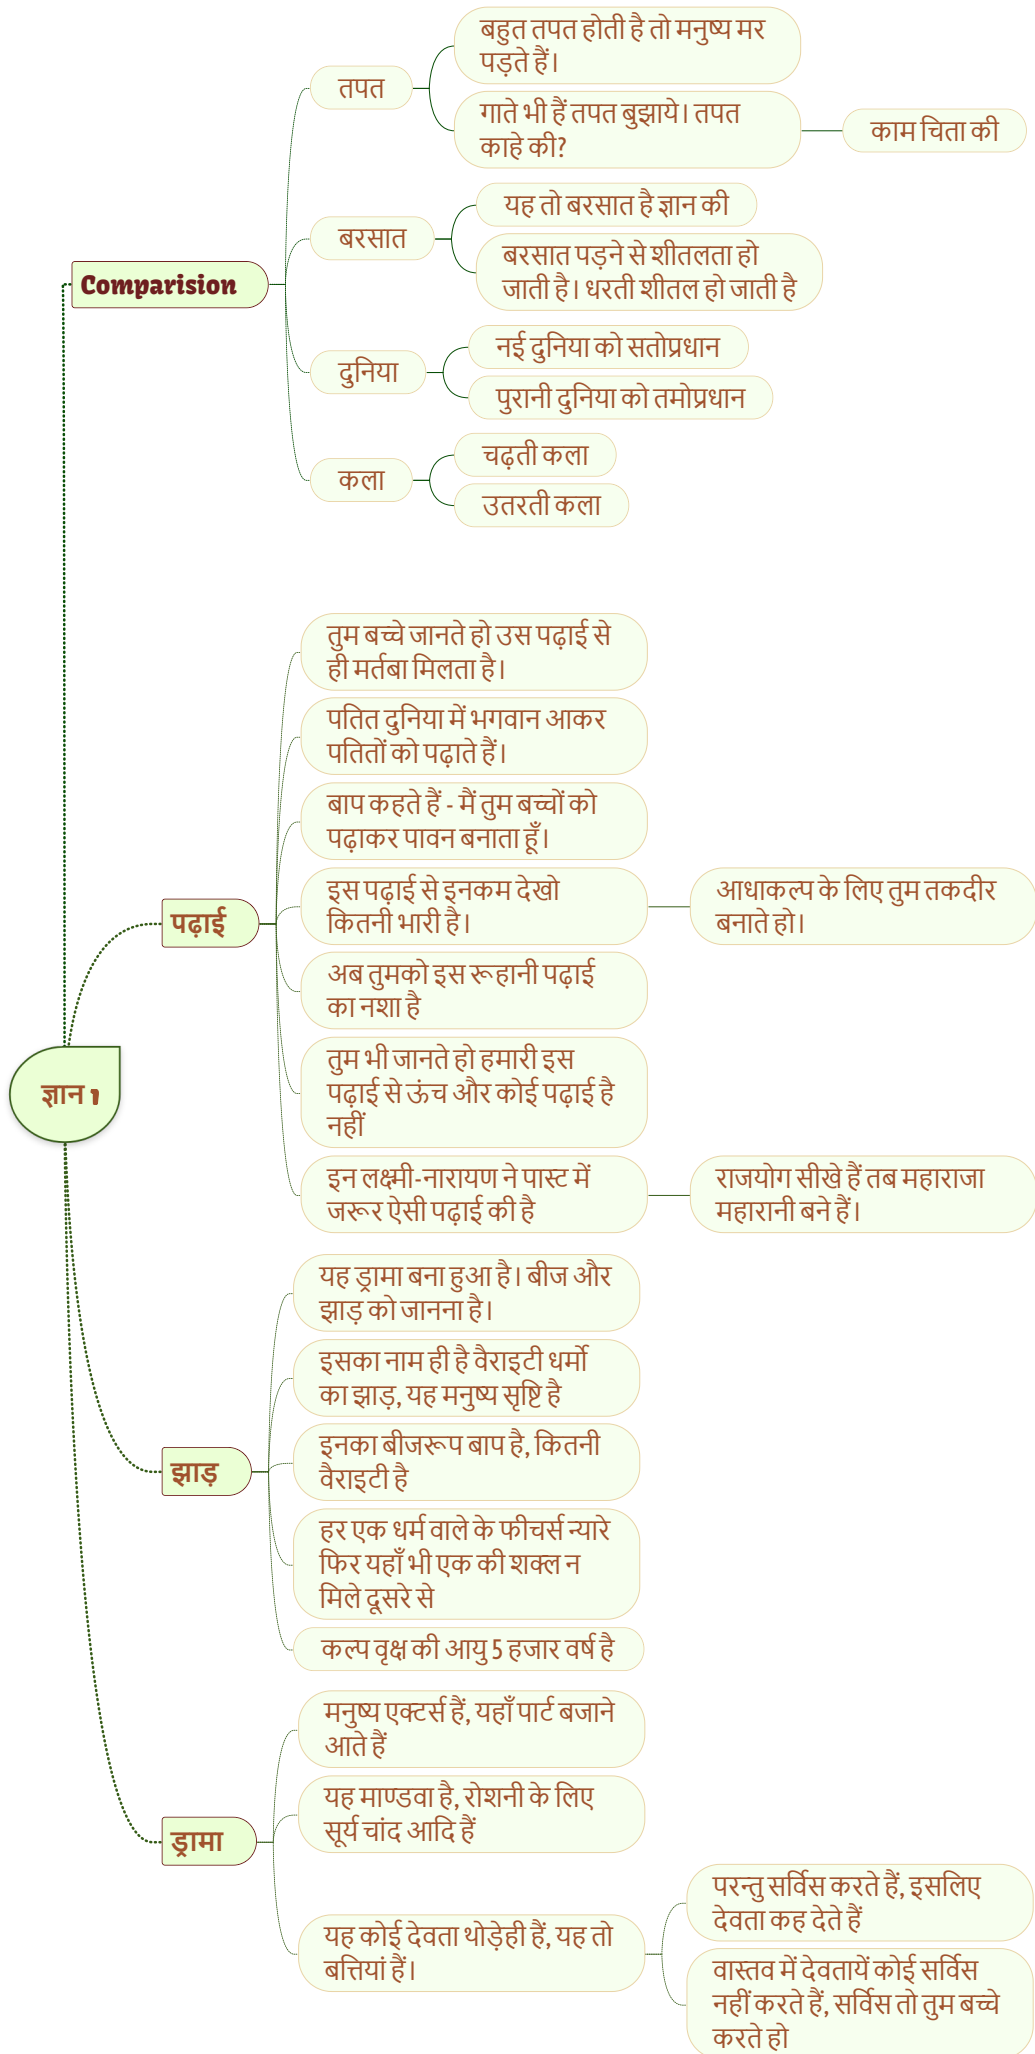 बहुत तपत होती है तो मनुष्य मर
पड़ते हैं।
तपत
गाते भी हैं तपत बुझाये। तपत
काहे की?
काम चिता की
यह तो बरसात है ज्ञान की
बरसात
बरसात पड़ने से शीतलता हो
जाती है। धरती शीतल हो जाती है
Comparision
नई दुनिया को सतोप्रधान
दुनिया
पुरानी दुनिया को तमोप्रधान
चढ़ती कला
कला
उतरती कला
तुम बच्चे जानते हो उस पढ़ाई से
ही मर्तबा मिलता है।
पतित दुनिया में भगवान आकर
पतितों को पढ़ाते हैं।
बाप कहते हैं - मैं तुम बच्चों को
पढ़ाकर पावन बनाता हूँ।
इस पढ़ाई से इनकम देखो
कितनी भारी है।
आधाकल्प के लिए तुम तकदीर
बनाते हो।
पढ़ाई
अब तुमको इस रूहानी पढ़ाई
का नशा है
तुम भी जानते हो हमारी इस
पढ़ाई से ऊंच और कोई पढ़ाई है
नहीं
ज्ञान १
इन लक्ष्मी-नारायण ने पास्ट में
जरूर ऐसी पढ़ाई की है
राजयोग सीखे हैं तब महाराजा
महारानी बने हैं।
यह ड्रामा बना हुआ है। बीज और
झाड़ को जानना है।
इसका नाम ही है वैराइटी धर्मो
का झाड़, यह मनुष्य सृष्टि है
इनका बीजरूप बाप है, कितनी
वैराइटी है
झाड़
हर एक धर्म वाले के फीचर्स न्यारे
फिर यहाँ भी एक की शक्ल न
मिले दूसरे से
कल्प वृक्ष की आयु 5 हजार वर्ष है
मनुष्य एक्टर्स हैं, यहाँ पार्ट बजाने
आते हैं
यह माण्डवा है, रोशनी के लिए
सूर्य चांद आदि हैं
ड्रामा
यह कोई देवता थोड़ेही हैं, यह तो
बत्तियां हैं।
परन्तु सर्विस करते हैं, इसलिए
देवता कह देते हैं
वास्तव में देवतायें कोई सर्विस
नहीं करते हैं, सर्विस तो तुम बच्चे
करते हो